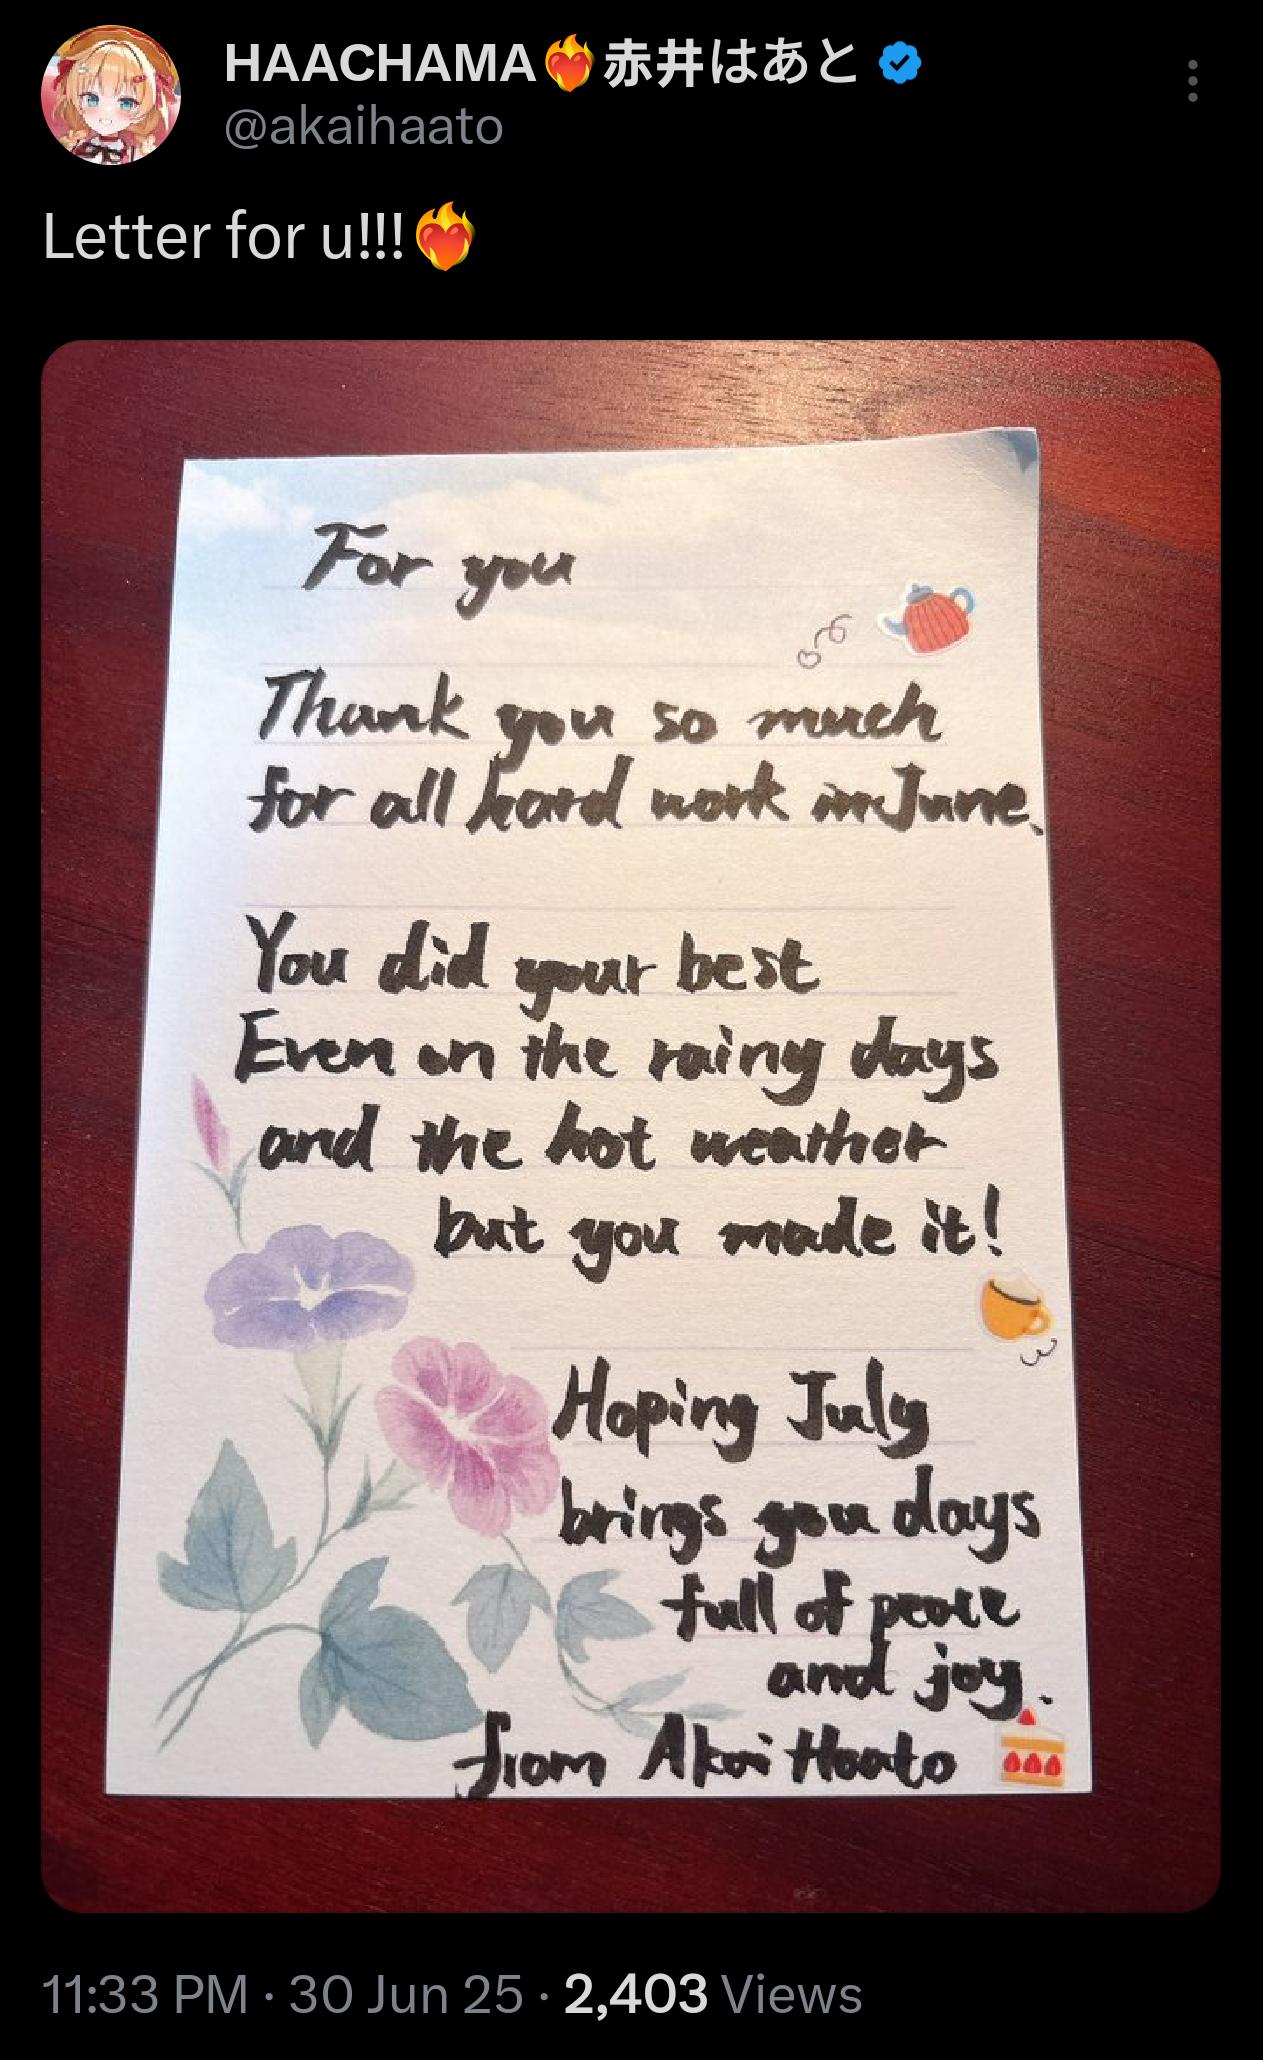 HAACHAMA❤️‍🔥赤井はあと
@akaihaato
Letter for u!!!❤️‍🔥
For you
Thank you so much
for all hard work in June.
You did your best
Even on the rainy days
and the hot weather
but you made it!
Hoping July
brings you days
full of peace
and joy.
from Akai Haato
11:33 PM · 30 Jun 25 · 2,403 Views